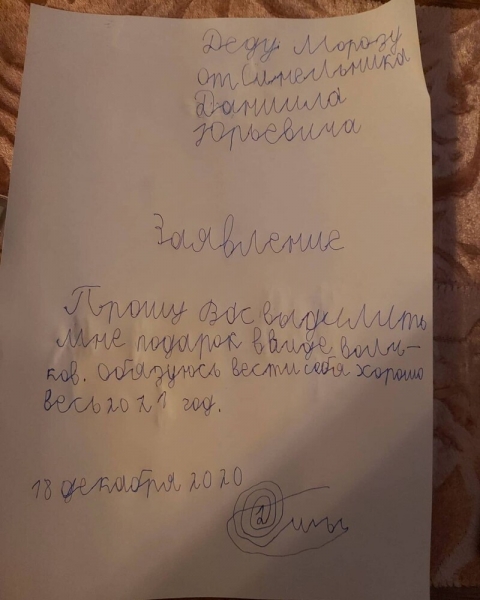 Деду Морозу
от Синельника
Даниила
Юрьевича
Заявление
Прошу вас выделить
мне подарок в виде
ков. обязуюсь вести себя хорошо
весь 2021 год.
18 декабря 2020